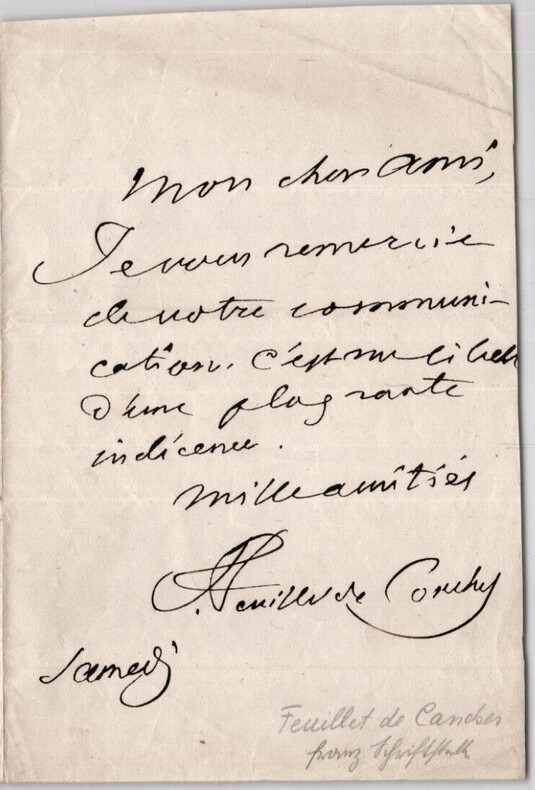 Mon cher ami,
Je vous remercie
de votre communi-
cation. C'est un libelle
d'une flagrante
indécence.
Mille amitiés
F. Feuillet de Conches
Samedi
Feuillet de Conches
franz. Schriftstell